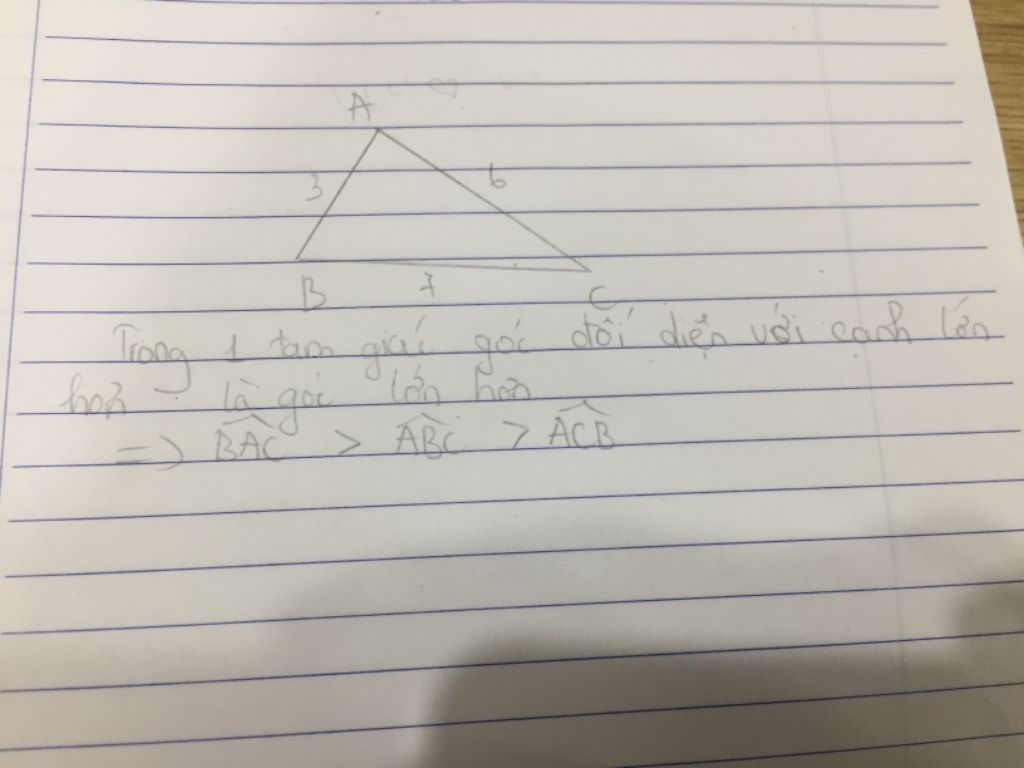 A
3 6
B 7 C
Trong 1 tam giác góc đối diện với cạnh lớn
hơn là góc lớn hơn
=> \widehat{BAC} > \widehat{ABC} > \widehat{ACB}